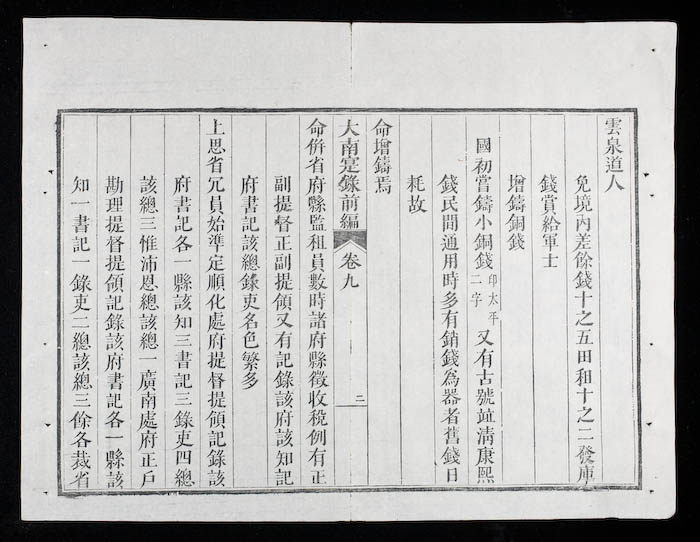 雲泉道人
免境內差餘錢十之五田租十之二發庫
錢賞給軍士
增鑄銅錢
國初嘗鑄小銅錢印太平二字又有古號並淸康熙
錢民間通用時多有銷錢為器者舊錢日
耗故
命增鑄焉
大南寔錄前編 卷九 二
命併省府縣監租員數時諸府縣徵收稅例有正
副提督正副提領又有記錄該府該知記
府書記該總錄吏名色繁多
上思省冗員始準定順化處府提督提領記錄該
府書記各一縣該知三書記三錄吏四總
該總三惟沛恩總該總一廣南處府正戶
勘理提督提領記錄該府書記各一縣該
知一書記一錄吏二總該總三餘各裁省